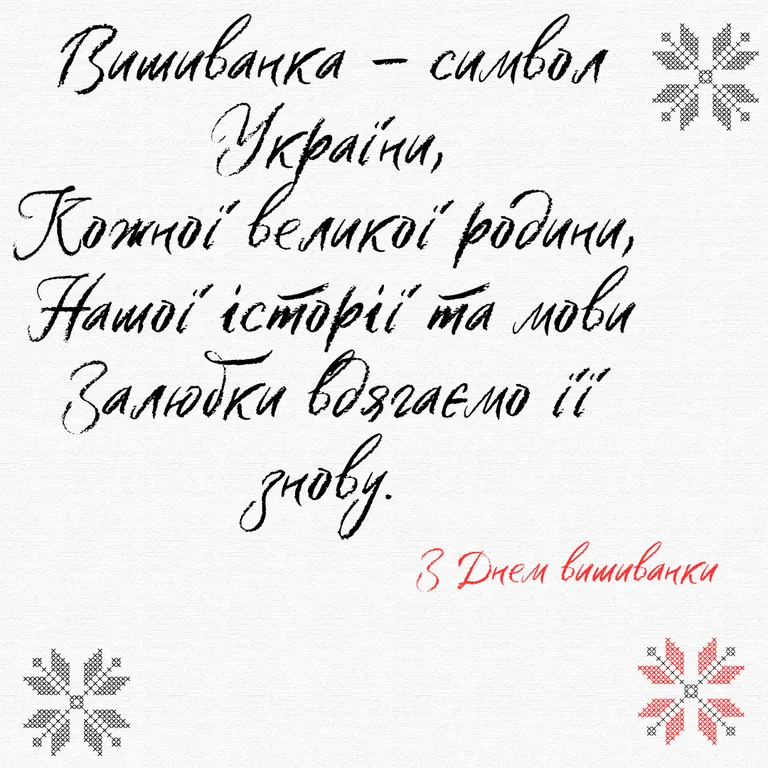 Вишиванка – символ
України,
Кожної великої родини,
Нашої історії та мови
Залюбки вдягаємо її
знову.
З Днем вишиванки